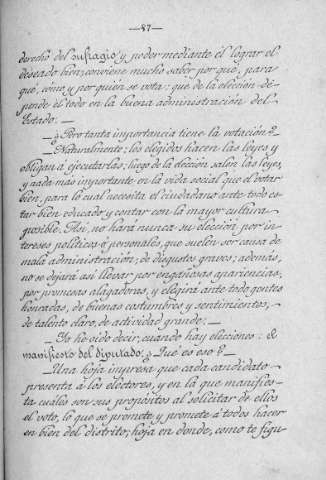 —87—
derecho del sufragio y poder mediante él lograr el
deseado bien, conviene mucho saber por qué, para
qué, cómo y por quién se vota: que de la elección de-
pende el todo en la buena administración del
Estado: —
—¿Pero tanta importancia tiene la votación? —
—Naturalmente; los elegidos hacen las leyes y
obligan a ejecutarlas; luego de la elección salen las leyes,
y nada más importante en la vida social que el votar
bien, para lo cual necesita el ciudadano ante todo es-
tar bien educado y contar con la mayor cultura
posible. Así, no hará nunca su elección por in-
tereses políticos ó personales, que suelen ser causa de
mala administración, de disgustos graves; además,
no se dejará así llevar por engañosas apariencias,
por promesas alagadoras, y elegirá ante todo gentes
honradas, de buenas costumbres y sentimientos,
de talento claro, de actividad grande: —
—Yo he oído decir, cuando hay elecciones: el
manifiesto del diputado; ¿Qué es eso? —
—Una hoja impresa que cada candidato
presenta á los electores, y en la que manifies-
ta cuáles son sus propósitos al solicitar de ellos
el voto, lo que se promete y promete á todos hacer
en bien del distrito; hoja en donde, como te figu-